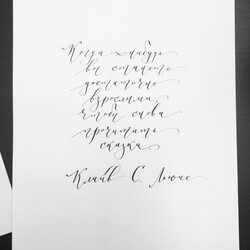 Когда-нибудь
вы станете
достаточно
взрослыми,
чтобы снова
прочитать
сказки
Клайв С. Льюис